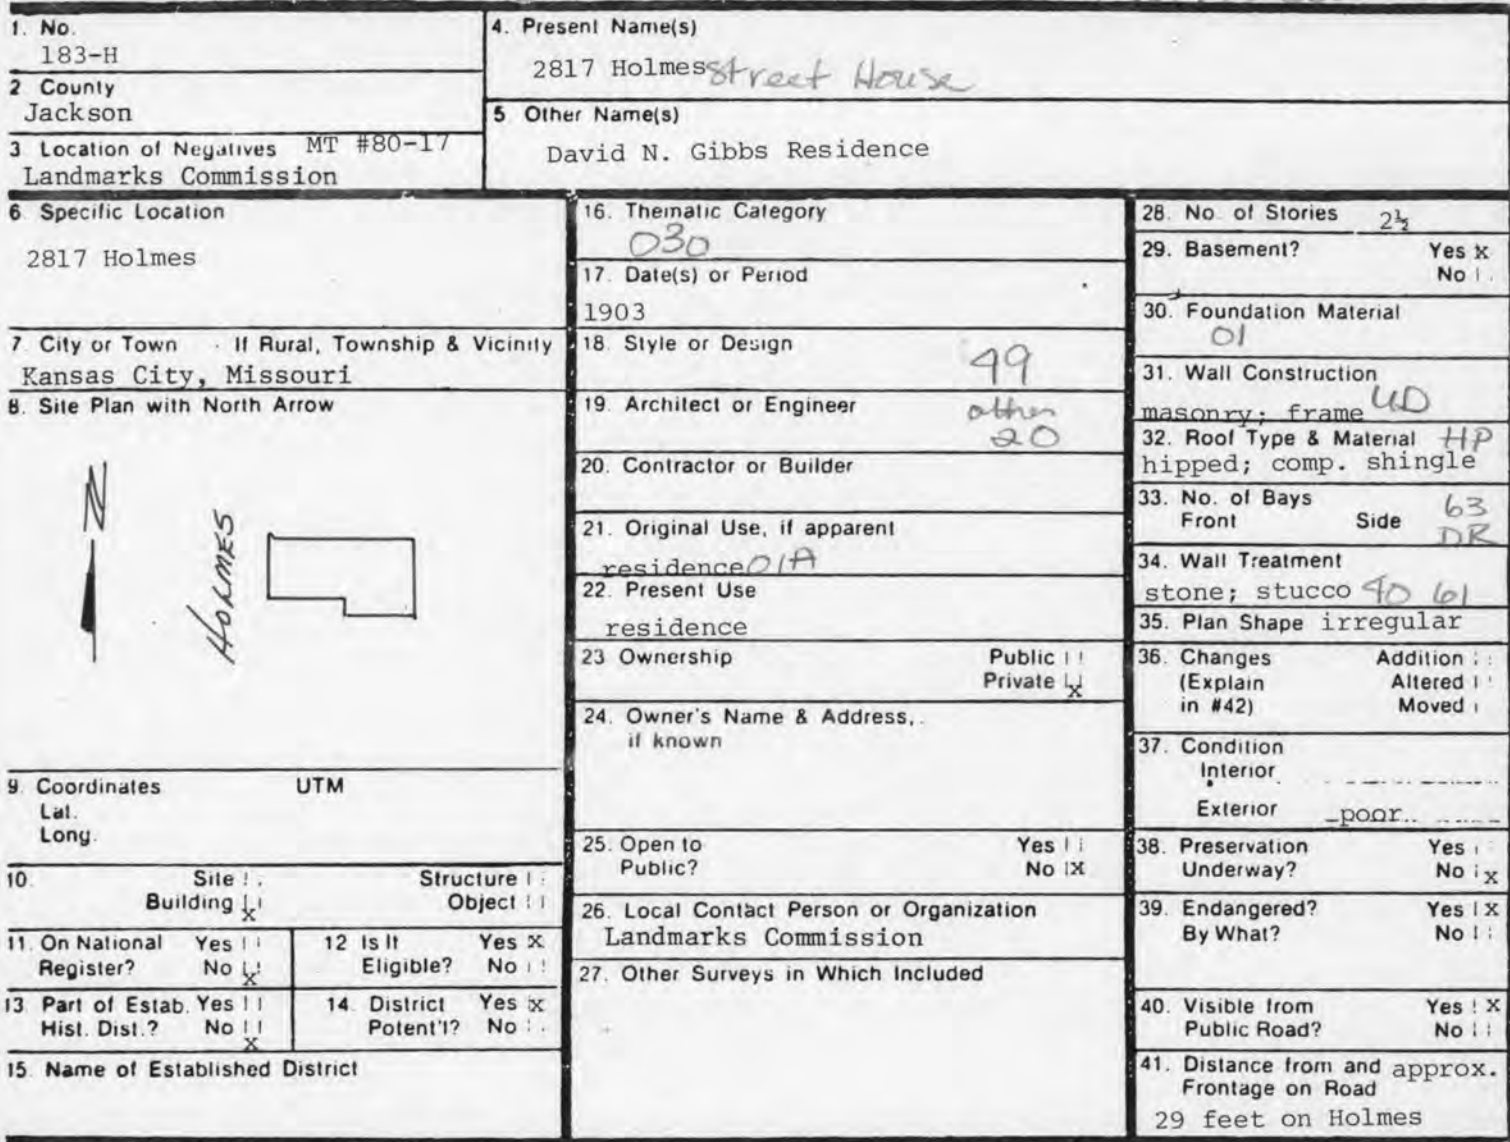 1. No.
183-H
2 County
Jackson
3 Location of Negatives MT #80-17
Landmarks Commission
4. Present Name(s)
2817 Holmes Street House
5 Other Name(s)
David N. Gibbs Residence
6. Specific Location
2817 Holmes
7. City or Town If Rural, Township & Vicinity
Kansas City, Missouri
8. Site Plan with North Arrow
N
HOLMES
9. Coordinates UTM
Lat.
Long.
10. Site Structure
Building X Object
11. On National Yes
Register? No X
12 Is It Yes X
Eligible? No
13 Part of Estab. Yes
Hist. Dist.? No X
14. District Yes X
Potent'l? No
15. Name of Established District
16. Thematic Category
030
17. Date(s) or Period
1903
18. Style or Design
49
19. Architect or Engineer other
20
20. Contractor or Builder
21. Original Use, if apparent
residence 01A
22. Present Use
residence
23 Ownership Public
Private X
24. Owner's Name & Address,
if known
25. Open to Yes
Public? No X
26. Local Contact Person or Organization
Landmarks Commission
27. Other Surveys in Which Included
28. No. of Stories 2½
29. Basement? Yes X
No
30. Foundation Material
01
31. Wall Construction
masonry; frame UD
32. Roof Type & Material HP
hipped; comp. shingle
33. No. of Bays 63
Front Side DR
34. Wall Treatment
stone; stucco 40 61
35. Plan Shape irregular
36. Changes Addition
(Explain Altered
in #42) Moved
37. Condition
Interior
Exterior poor
38. Preservation Yes
Underway? No X
39. Endangered? Yes X
By What? No
40. Visible from Yes X
Public Road? No
41. Distance from and approx.
Frontage on Road
29 feet on Holmes